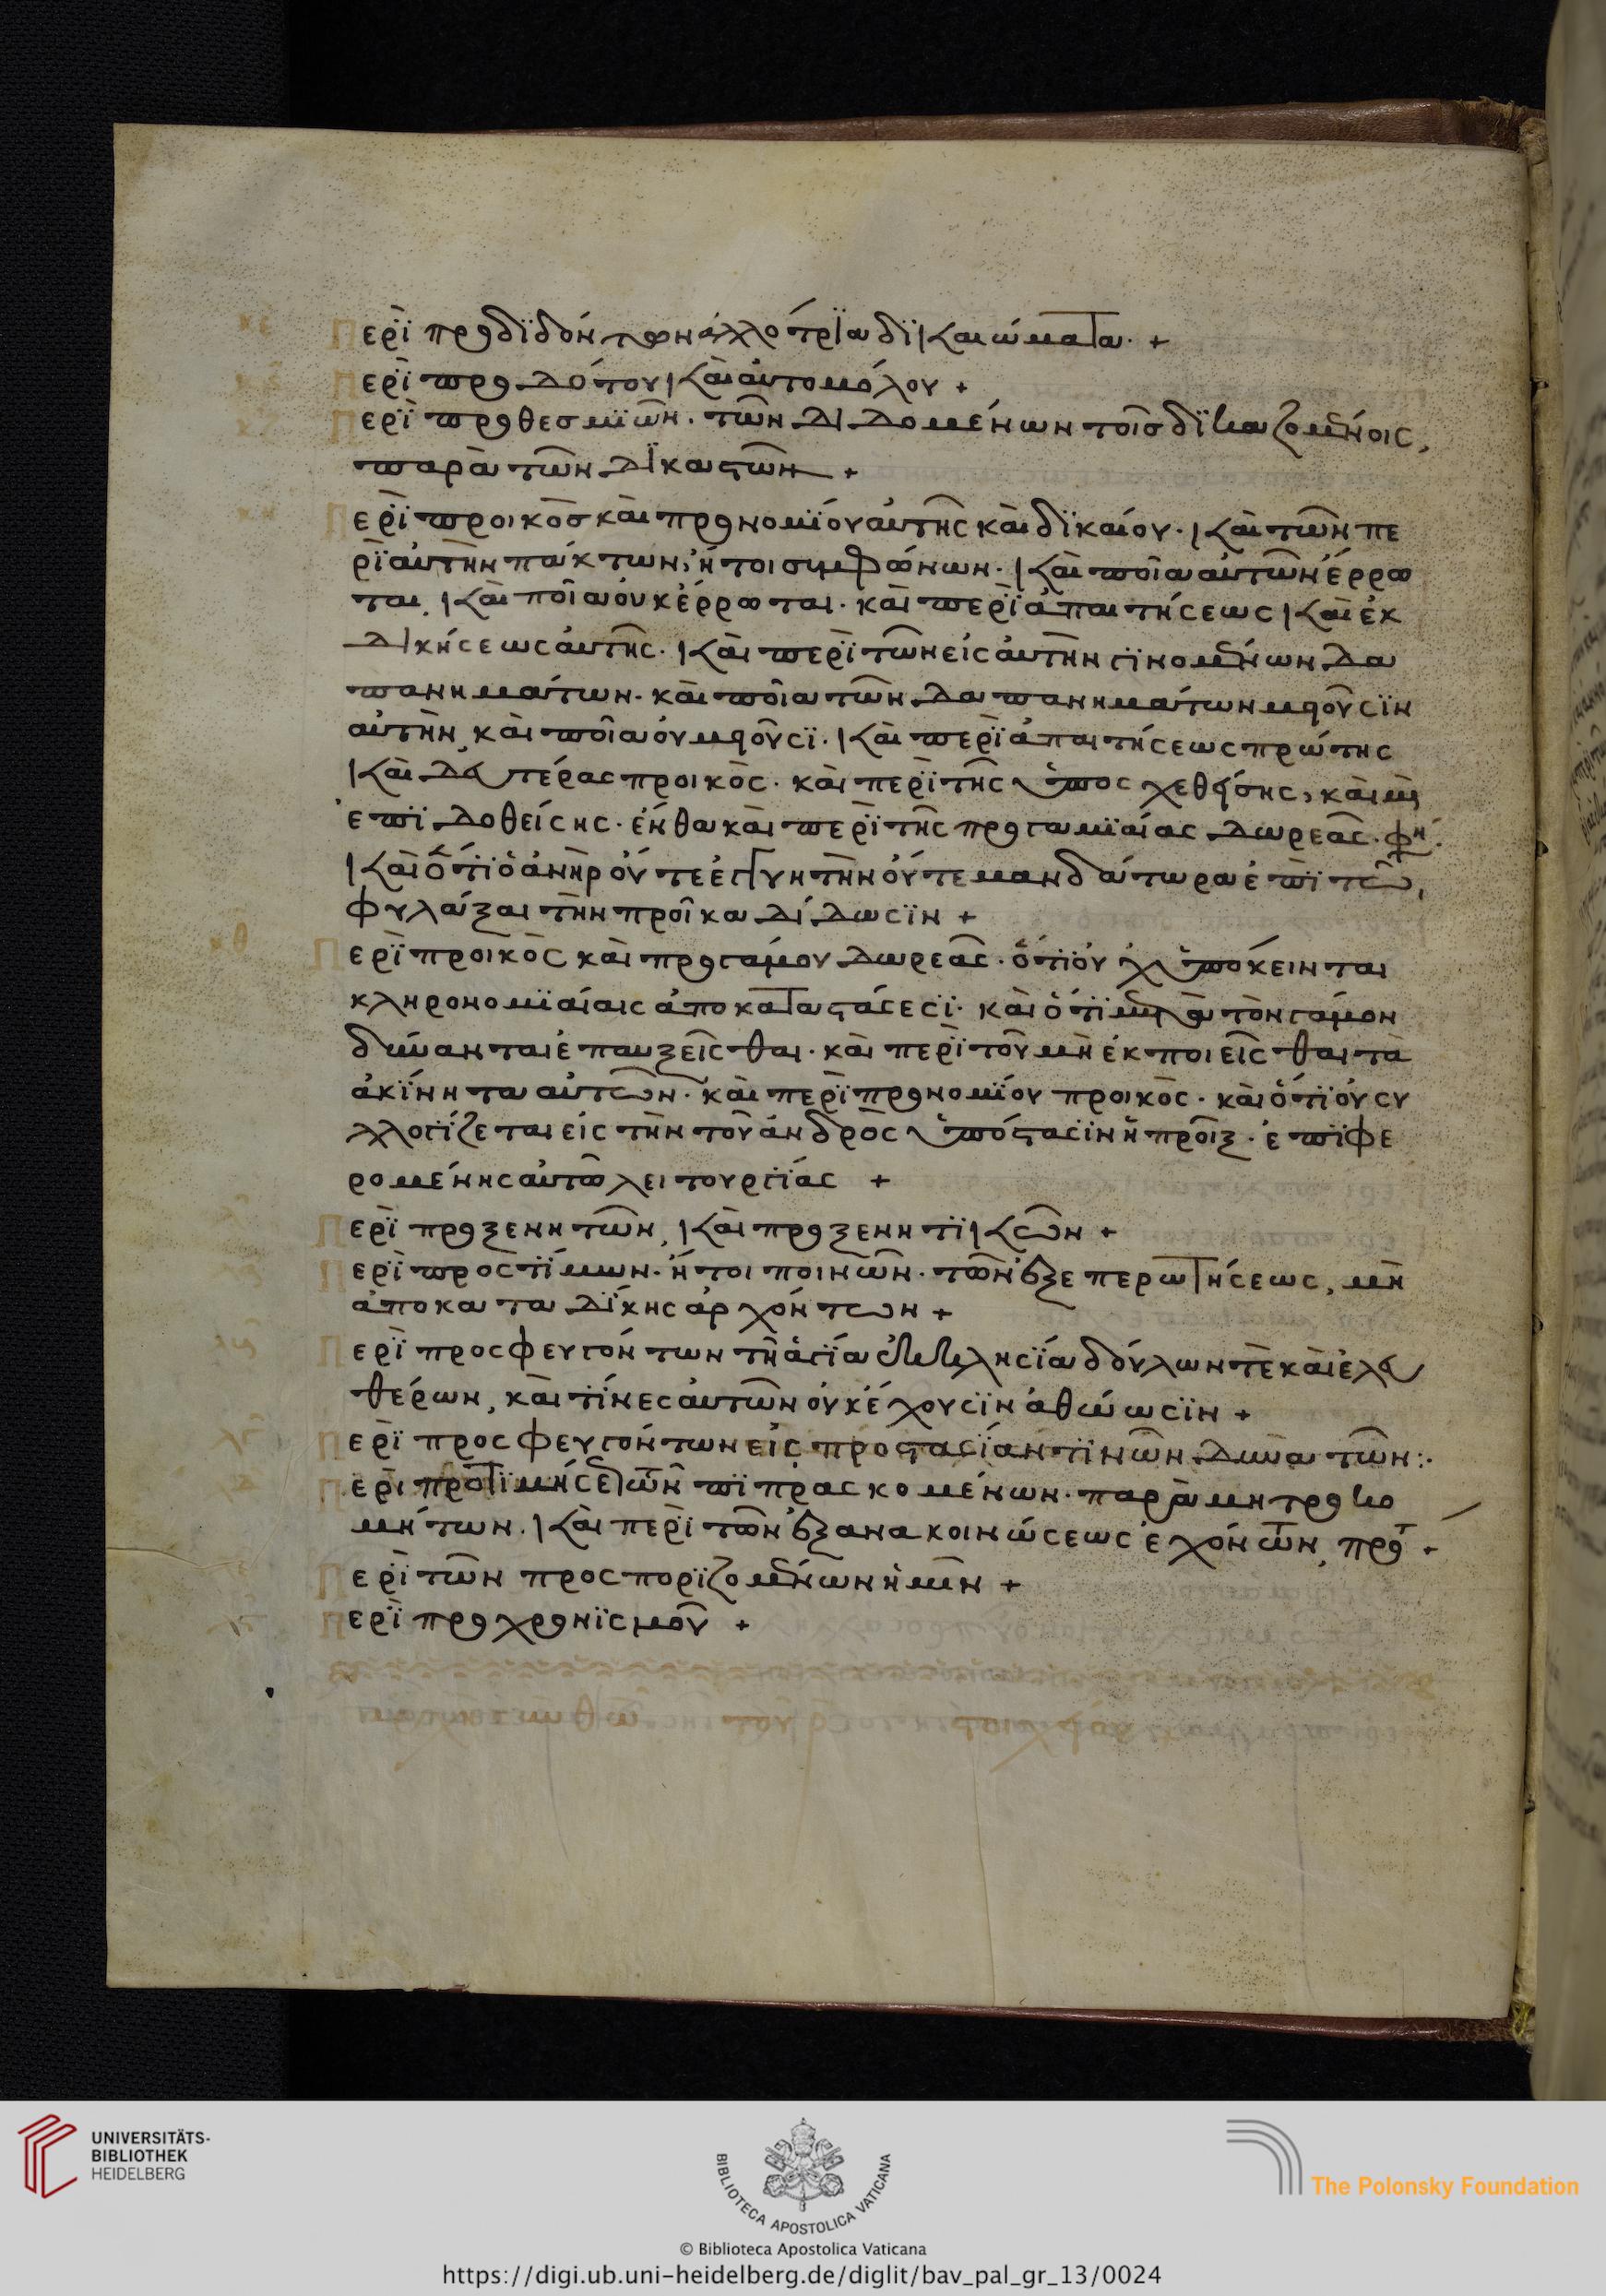 κε Περὶ προδιδόντων ἀλλότρια δικαιώματα +
Περὶ προδότου καὶ αὐτομόλου +
Περὶ προθεσμιῶν· τῶν διδομένων τοῖς δικαζομένοις,
παρὰ τῶν δικαστῶν +
κη Περὶ προικὸς καὶ προνομίου αὐτῆς καὶ δικαίου· καὶ τῶν πε
ρὶ αὐτὴν πάκτων, ἤτοι συμφώνων· καὶ ποῖα αὐτῶν ἔρρω
ται, καὶ ποῖα οὐκ ἔρρωται· καὶ περὶ ἀπαιτήσεως καὶ ἐκ
δικήσεως αὐτῆς· καὶ περὶ τῶν εἰς αὐτὴν γινομένων δα
πανημάτων· καὶ ποῖα τῶν δαπανημάτων μειοῦσιν
αὐτὴν, καὶ ποῖα οὐ μειοῦσι· καὶ περὶ ἀπαιτήσεως πρώτης
καὶ δευτέρας προικός· καὶ περὶ τῆς ὑποσχεθείσης, καὶ μὴ
ἐπιδοθείσης· ἔνθα καὶ περὶ τῆς προγαμιαίας δωρεᾶς· φη·
καὶ ὅτι ὁ ἀνὴρ οὔτε ἐγγυητὴν οὔτε μανδάτωρα ἐπὶ τῷ,
φυλάξαι τὴν προῖκα δίδωσιν +
κθ Περὶ προικὸς καὶ προγάμου δωρεᾶς· ὅτι οὐχ ὑπόκεινται
κληρονομιαίαις ἀποκαταστάσεσι· καὶ ὅτι μετὰ τὸν γάμον
δύνανται ἐπαυξεῖσθαι· καὶ περὶ τοῦ μὴ ἐκποιεῖσθαι τὰ
ἀκίνητα αὐτῶν· καὶ περὶ προνομίου προικός· καὶ ὅτι οὐ συ
λλογίζεται εἰς τὴν τοῦ ἀνδρὸς ὑπόστασιν ἡ προῖξ· ἐπιφε
ρομένης αὐτῷ λειτουργίας +
Περὶ προξενητῶν, καὶ προξενητικῶν +
Περὶ προστίμων· ἤτοι ποινῶν· τῶν ἐξ ἐπερωτήσεως, μὴν
ἀπὸ καταδίκης ἀρχόντων +
Περὶ προσφευγόντων τῇ ἁγίᾳ ἐκκλησίᾳ δούλων τε καὶ ἐλευ
θέρων, καὶ τίνες αὐτῶν οὐκ ἔχουσιν ἀθώωσιν +
Περὶ προσφευγόντων εἰς προστασίαν τινῶν δυνατῶν:·
Περὶ προτιμήσε τῶν πιπρασκομένων· παρὰ μητροκο
μήτων· καὶ περὶ τῶν ἐξ ἀνακοινώσεως ἐχόντων, προτ +
Περὶ τῶν προσποριζομένων ἡμῖν +
Περὶ προχρονισμοῦ +
UNIVERSITÄTS-
BIBLIOTHEK
HEIDELBERG
BIBLIOTECA APOSTOLICA VATICANA
The Polonsky Foundation
© Biblioteca Apostolica Vaticana
https://digi.ub.uni-heidelberg.de/diglit/bav_pal_gr_13/0024